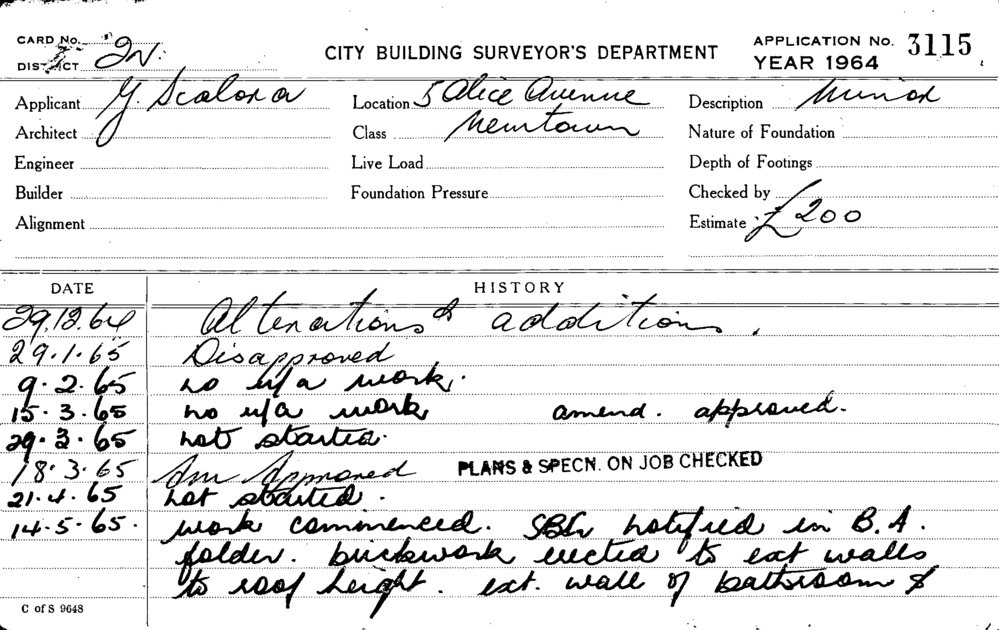 CARD No.
DISTRICT 2N.
CITY BUILDING SURVEYOR'S DEPARTMENT
APPLICATION No. 3115
YEAR 1964
Applicant G. Scalora Location 5 Alice Avenue Description Minor
Architect Class Newtown Nature of Foundation
Engineer Live Load Depth of Footings
Builder Foundation Pressure Checked by
Alignment Estimate £200
DATE HISTORY
29.12.64 Alterations & additions.
29.1.65 Disapproved
9.2.65 no u/a work.
15.3.65 no u/a work amend. approved.
29.3.65 not started.
18.3.65 Am Approved PLANS & SPECN. ON JOB CHECKED
21.4.65 not started.
14.5.65. work commenced. notified in B.A.
folder. brickwork erected to ext walls
to roof height. ext. wall of bathroom &
C of S 9648